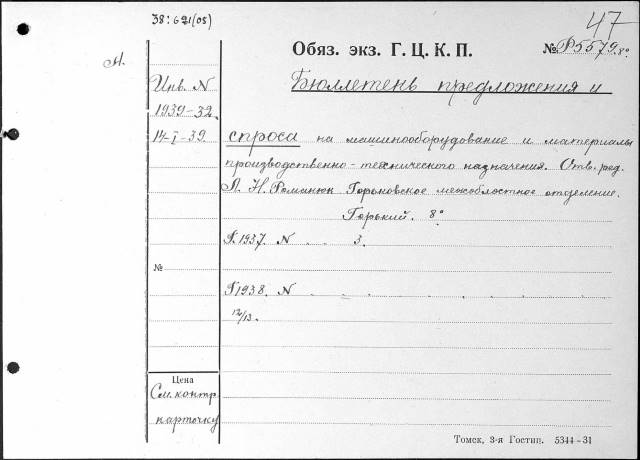 38:621(05)
47
Обяз. экз. Г. Ц. К. П. № Р5579.8°
Инв. N Бюллетень предложения и
1939-32.
14-I-39. спроса на машинооборудование и материалы
производственно-технического назначения. Отв. ред.
Л. Н. Романюк Горьковское межобластное отделение.
Горький. 8°
Г. 1937. N . . 3.
№
Г 1938. N . . . . .
12/13.
Цена
См. контр.
карточку
Томск, 3-я Гостип. 5344-31